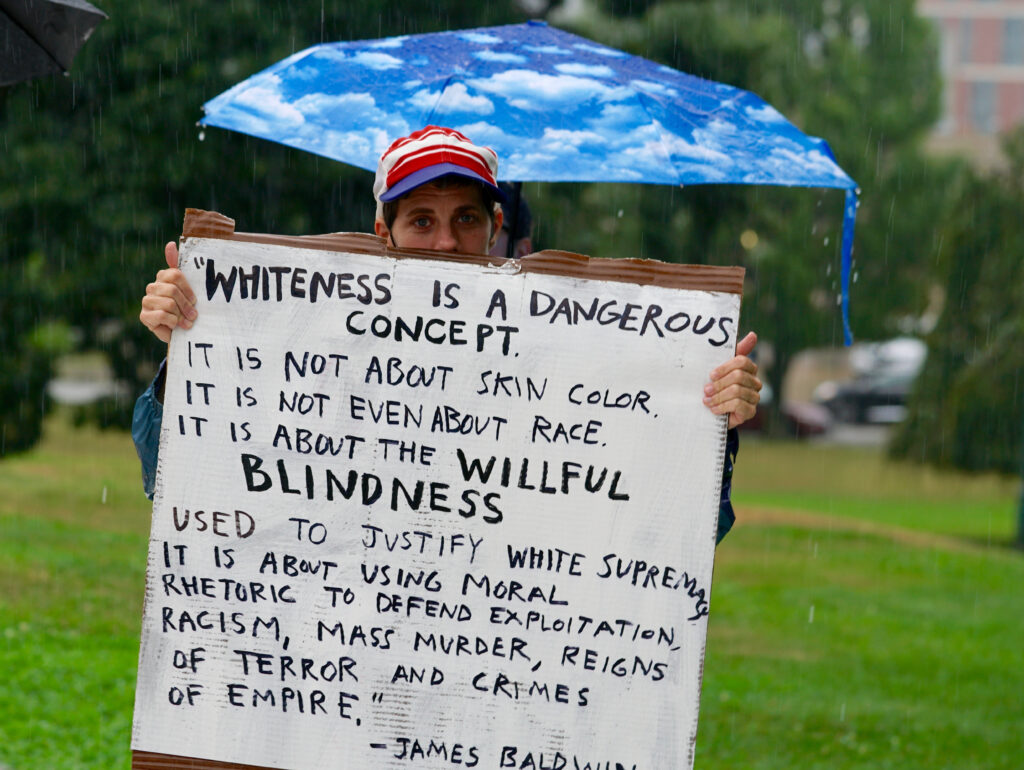 "WHITENESS IS A DANGEROUS
CONCEPT.
IT IS NOT ABOUT SKIN COLOR.
IT IS NOT EVEN ABOUT RACE.
IT IS ABOUT THE WILLFUL
BLINDNESS
USED TO JUSTIFY WHITE SUPREMACY
IT IS ABOUT USING MORAL
RHETORIC TO DEFEND EXPLOITATION,
RACISM, MASS MURDER, REIGNS
OF TERROR AND CRIMES
OF EMPIRE."
- JAMES BALDWIN